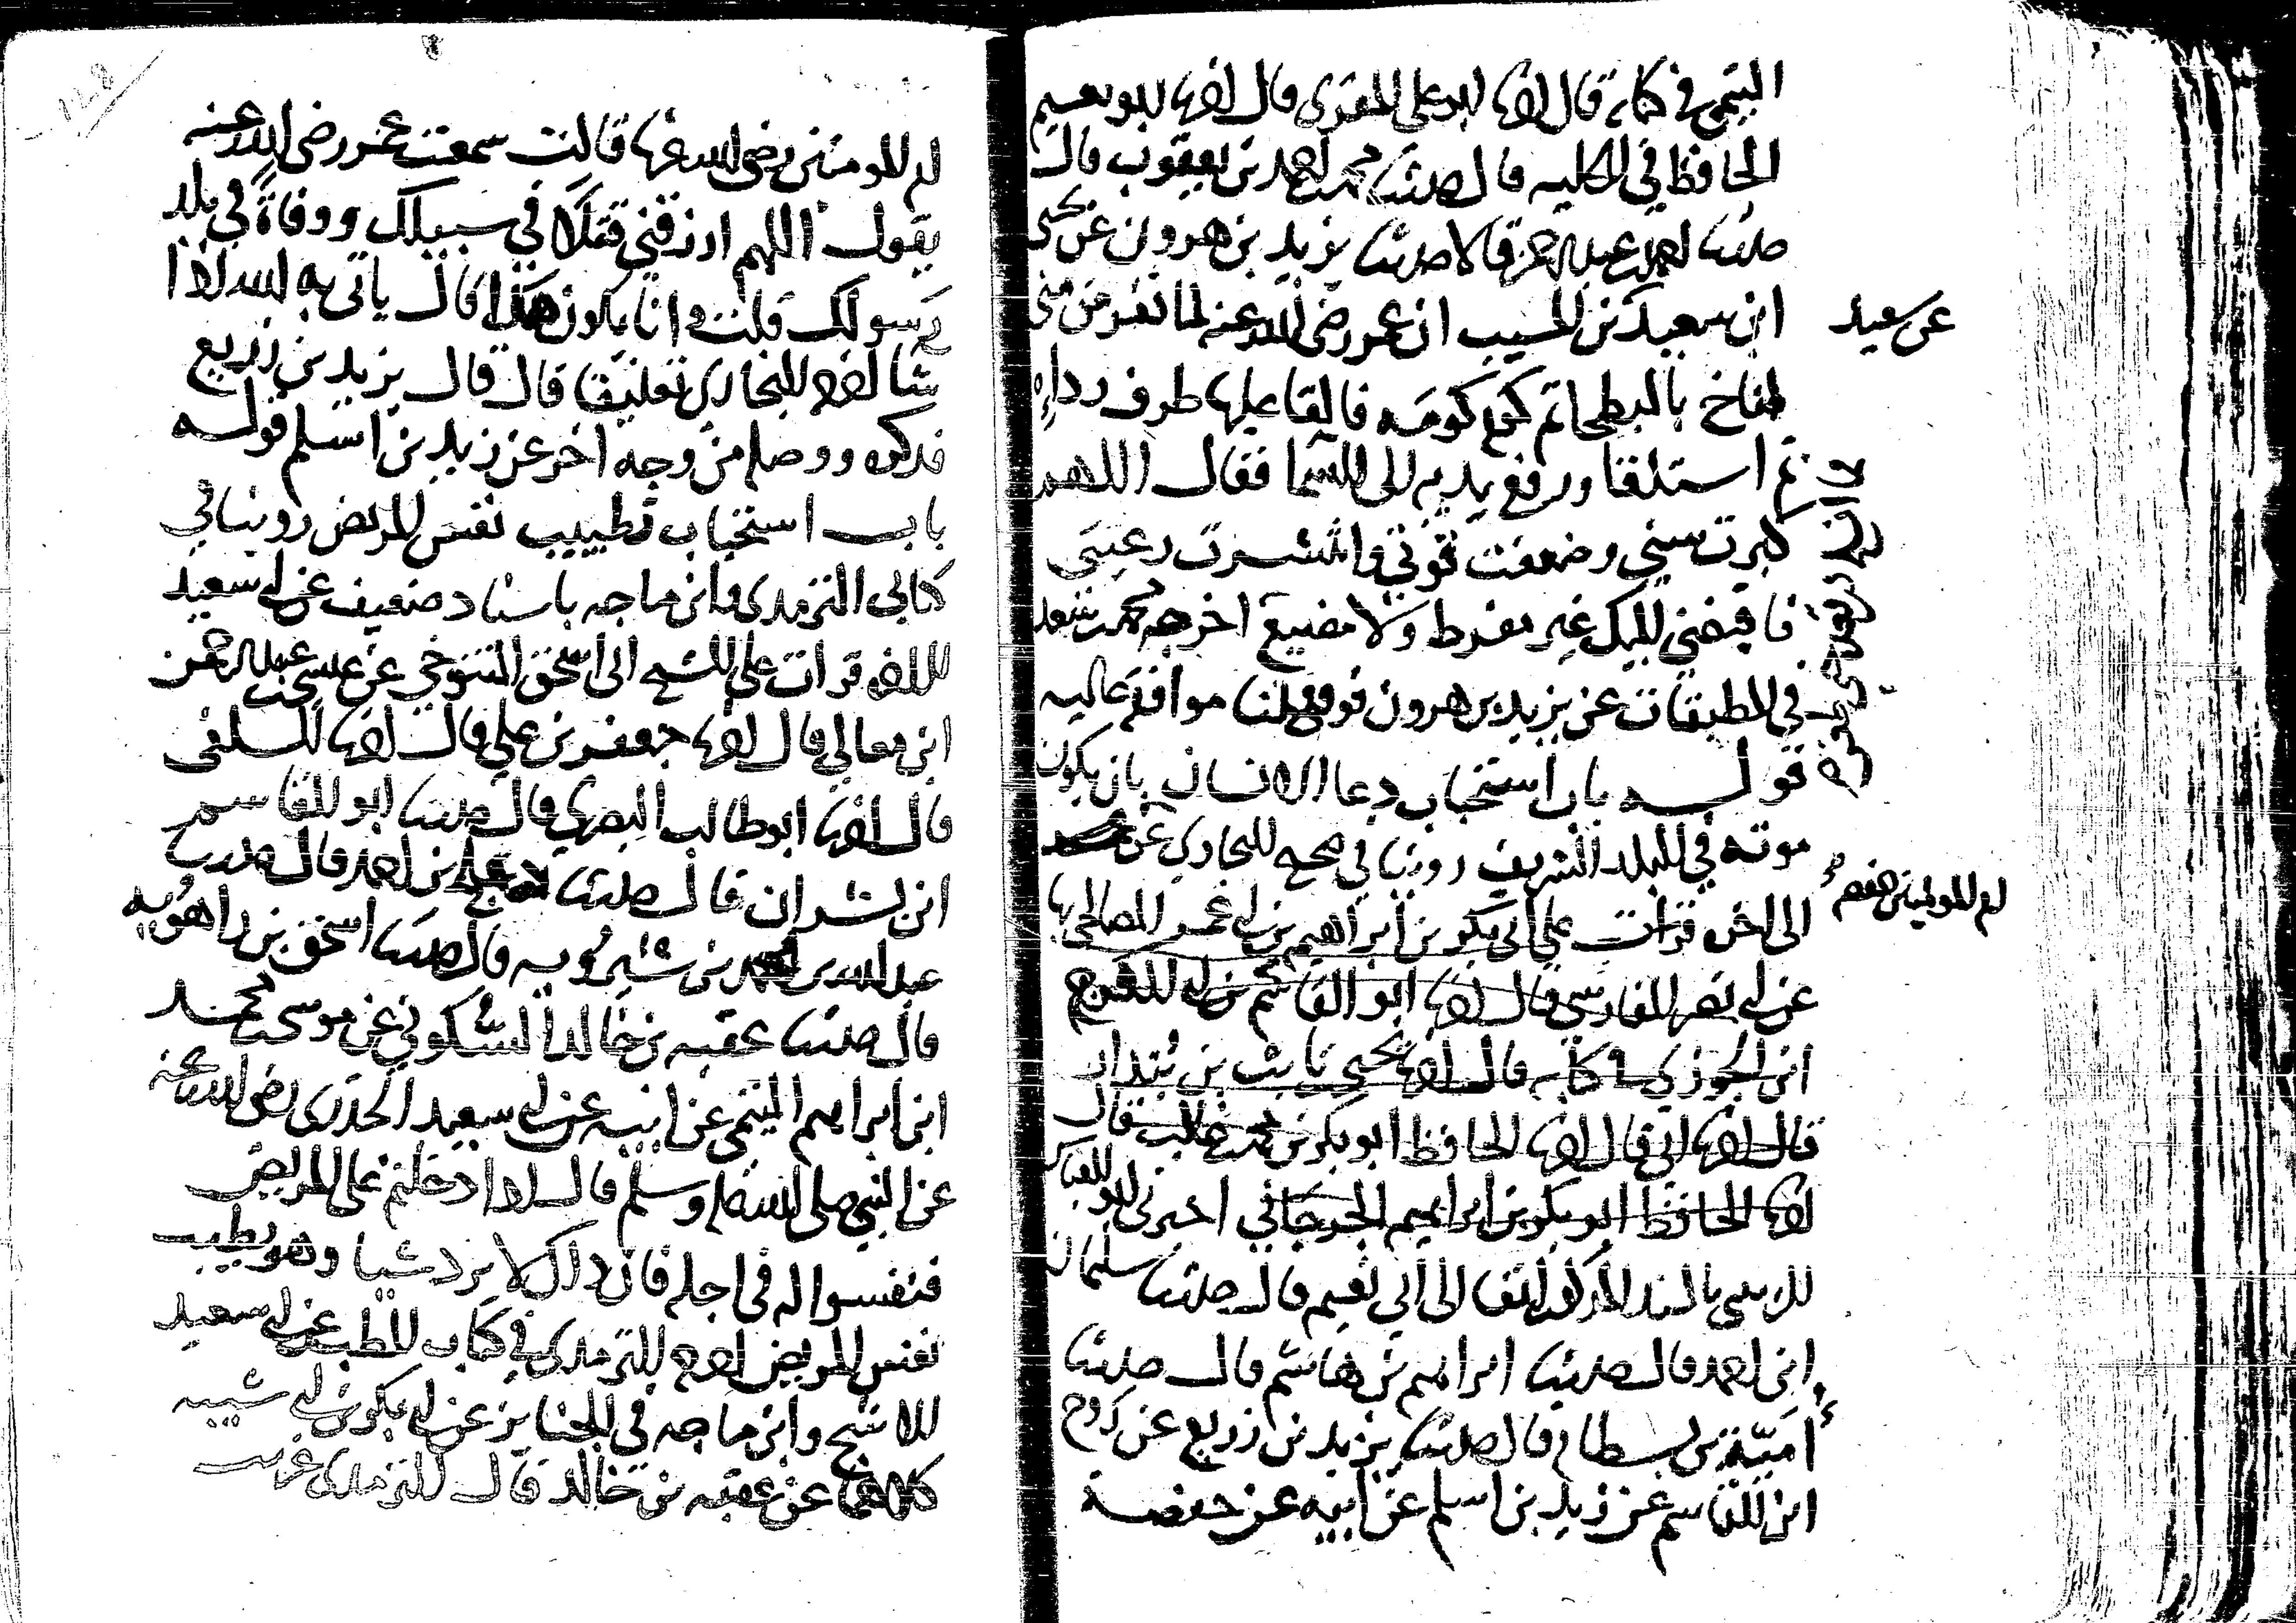 التيمي في كتابه قال انا ابو علي المقرى قال انا ابو نعيم
الحافظ في الحليه قال حدثنا محمد بن احمد بن يعقوب قال
حدثنا احمد بن عبد الرحمن قالا حدثنا يزيد بن هرون عن يحيى
ابن سعيد بن المسيب ان عمر رضي الله عنه لما نفر من منى
عن سعيد
اناخ بالبطحا ثم كوم كومه فالقا عليها طرف رداءه
ثم استلقا ورفع يديه الى السما فقال اللهم
كبرت سني وضعفت قوتي وانتشرت رعيتي
فاقبضني اليك غير مفرط ولا مضيع اخرجه محمد بن سعد
في الطبقات عن يزيد بن هرون فوقع لنا موافقة عاليه
قوله باب استحباب دعا الانسان بان يكون
موته في البلد الشريف روينا في صحيح البخاري عن
ام المومنين حفصه
الى اخره قرات على ابي بكر بن ابراهيم بن ابي عمر الصالحي بها
عن ابي نصر الفارسي قال انا ابو القاسم بن ابي الفرج
ابن الجوزي في كتابه قال انا يحيى بن ثابت بن بندار
قال انا ابي قال انا الحافظ ابو بكر بن محمد بن غالب قال
انا الحافظ ابو بكر بن ابراهيم الجرجاني اخبرني
بالسند الى ابي نعيم قال حدثنا سليمان
ابن احمد قال حدثنا ابراهيم بن هاشم قال حدثنا
امية بن بسطام قال حدثنا يزيد بن زريع عن روح
ابن القاسم عن زيد بن اسلم عن ابيه عن حفصة
ام المومنين رضي الله عنها قالت سمعت عمر رضي الله عنه
يقول اللهم ارزقني قتلا في سبيلك ووفاة في بلد
رسولك قلت وانا يكون هذا قال ياتي به الله اذا
شا اخرجه البخاري تعليقا قال قال يزيد بن زريع
فذكره ووصله من وجه اخر عن زيد بن اسلم قوله
باب استحباب تطييب نفس المريض روينا في
كتابي الترمذي وابن ماجه باسناد ضعيف عن ابي سعيد
الى اخره قرات على الشيخ ابي اسحق التنوخي عن عيسى بن عبد الرحمن
ابن معالي قال انا جعفر بن علي قال انا السلفي
قال انا ابو طالب البصري قال حدثنا ابو القاسم
ابن بشران قال حدثنا دعلج بن احمد قال حدثنا
عبد الله بن محمد بن شيرويه قال حدثنا اسحق بن راهويه
قال حدثنا عقبه بن خالد السكوني عن موسى بن محمد
ابن ابراهيم التيمي عن ابيه عن ابي سعيد الخدري رضي الله عنه
عن النبي صلى الله عليه وسلم قال اذا دخلتم على المريض
فنفسوا له في اجله فان ذلك لا يرد شيا وهو يطيب
نفس المريض اخرجه الترمذي في كتاب الطب عن ابي سعيد
الاشج وابن ماجه في الجنايز عن ابي بكر بن ابي شيبه
كلاهما عن عقبه بن خالد قال الترمذي غريب